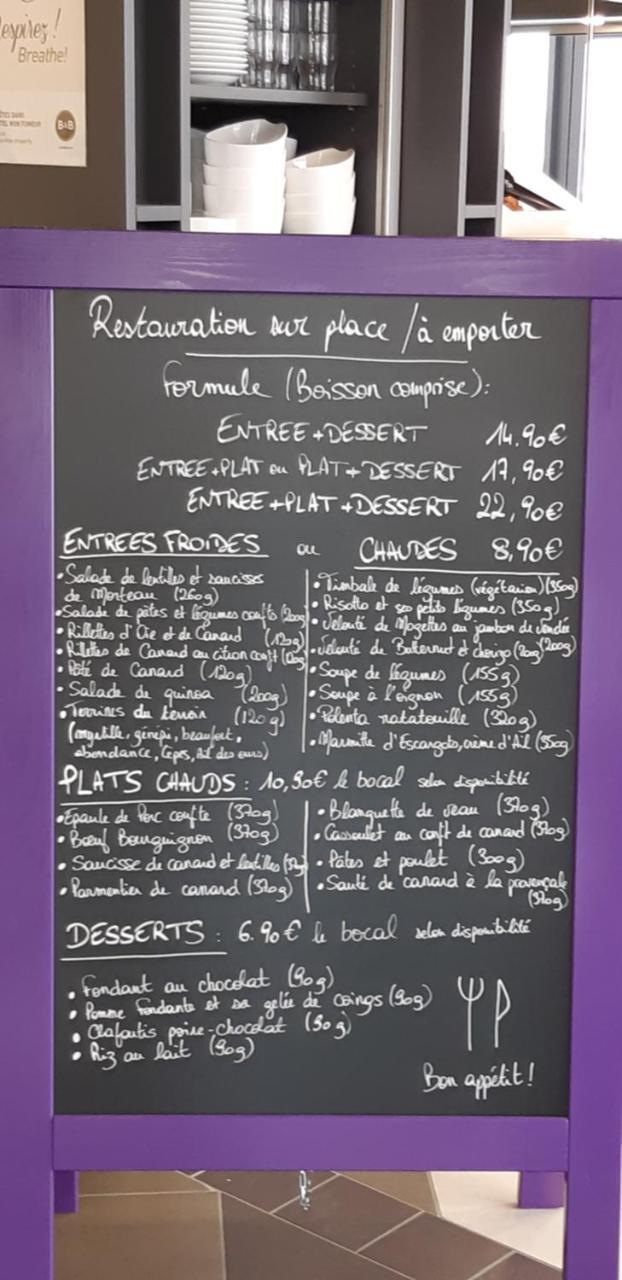 espirez !
Breathe!
B&B
Restauration sur place / à emporter
Formule (Boisson comprise) :
ENTREE + DESSERT 14,90€
ENTREE + PLAT ou PLAT + DESSERT 17,90€
ENTREE + PLAT + DESSERT 22,90€
ENTREES FROIDES ou CHAUDES 8,90€
• Salade de lentilles et saucisses
de Morteau (260g)
• Salade de pâtes et légumes confits (200g)
• Rillettes d'Oie et de Canard (120g)
• Rillettes de Canard au citron confit (120g)
• Pâté de Canard (120g)
• Salade de quinoa (200g)
• Terrines du terroir (120g)
(myrtille, génépi, beaufort,
abondance, cèpes, Ail des ours)
• Timbale de légumes (végétarien) (350g)
• Risotto et ses petits légumes (350g)
• Velouté de Mogettes au jambon de vendée
(200g)
• Velouté de Butternut et chorizo (200g)
• Soupe de légumes (155g)
• Soupe à l'oignon (155g)
• Polenta ratatouille (320g)
• Marmite d'Escargots, crème d'Ail (350g)
PLATS CHAUDS : 10,90€ le bocal selon disponibilité
• Epaule de Porc confite (370g)
• Bœuf Bourguignon (370g)
• Saucisse de canard et lentilles
• Parmentier de canard (320g)
• Blanquette de veau (370g)
• Cassoulet au confit de canard (370g)
• Pâtes et poulet (300g)
• Sauté de canard à la provençale
(370g)
DESSERTS : 6.90€ le bocal selon disponibilité
• Fondant au chocolat (90g)
• Pomme fondante et sa gelée de coings (90g)
• Clafoutis poire-chocolat (90g)
• Riz au lait (90g)
Bon appétit !